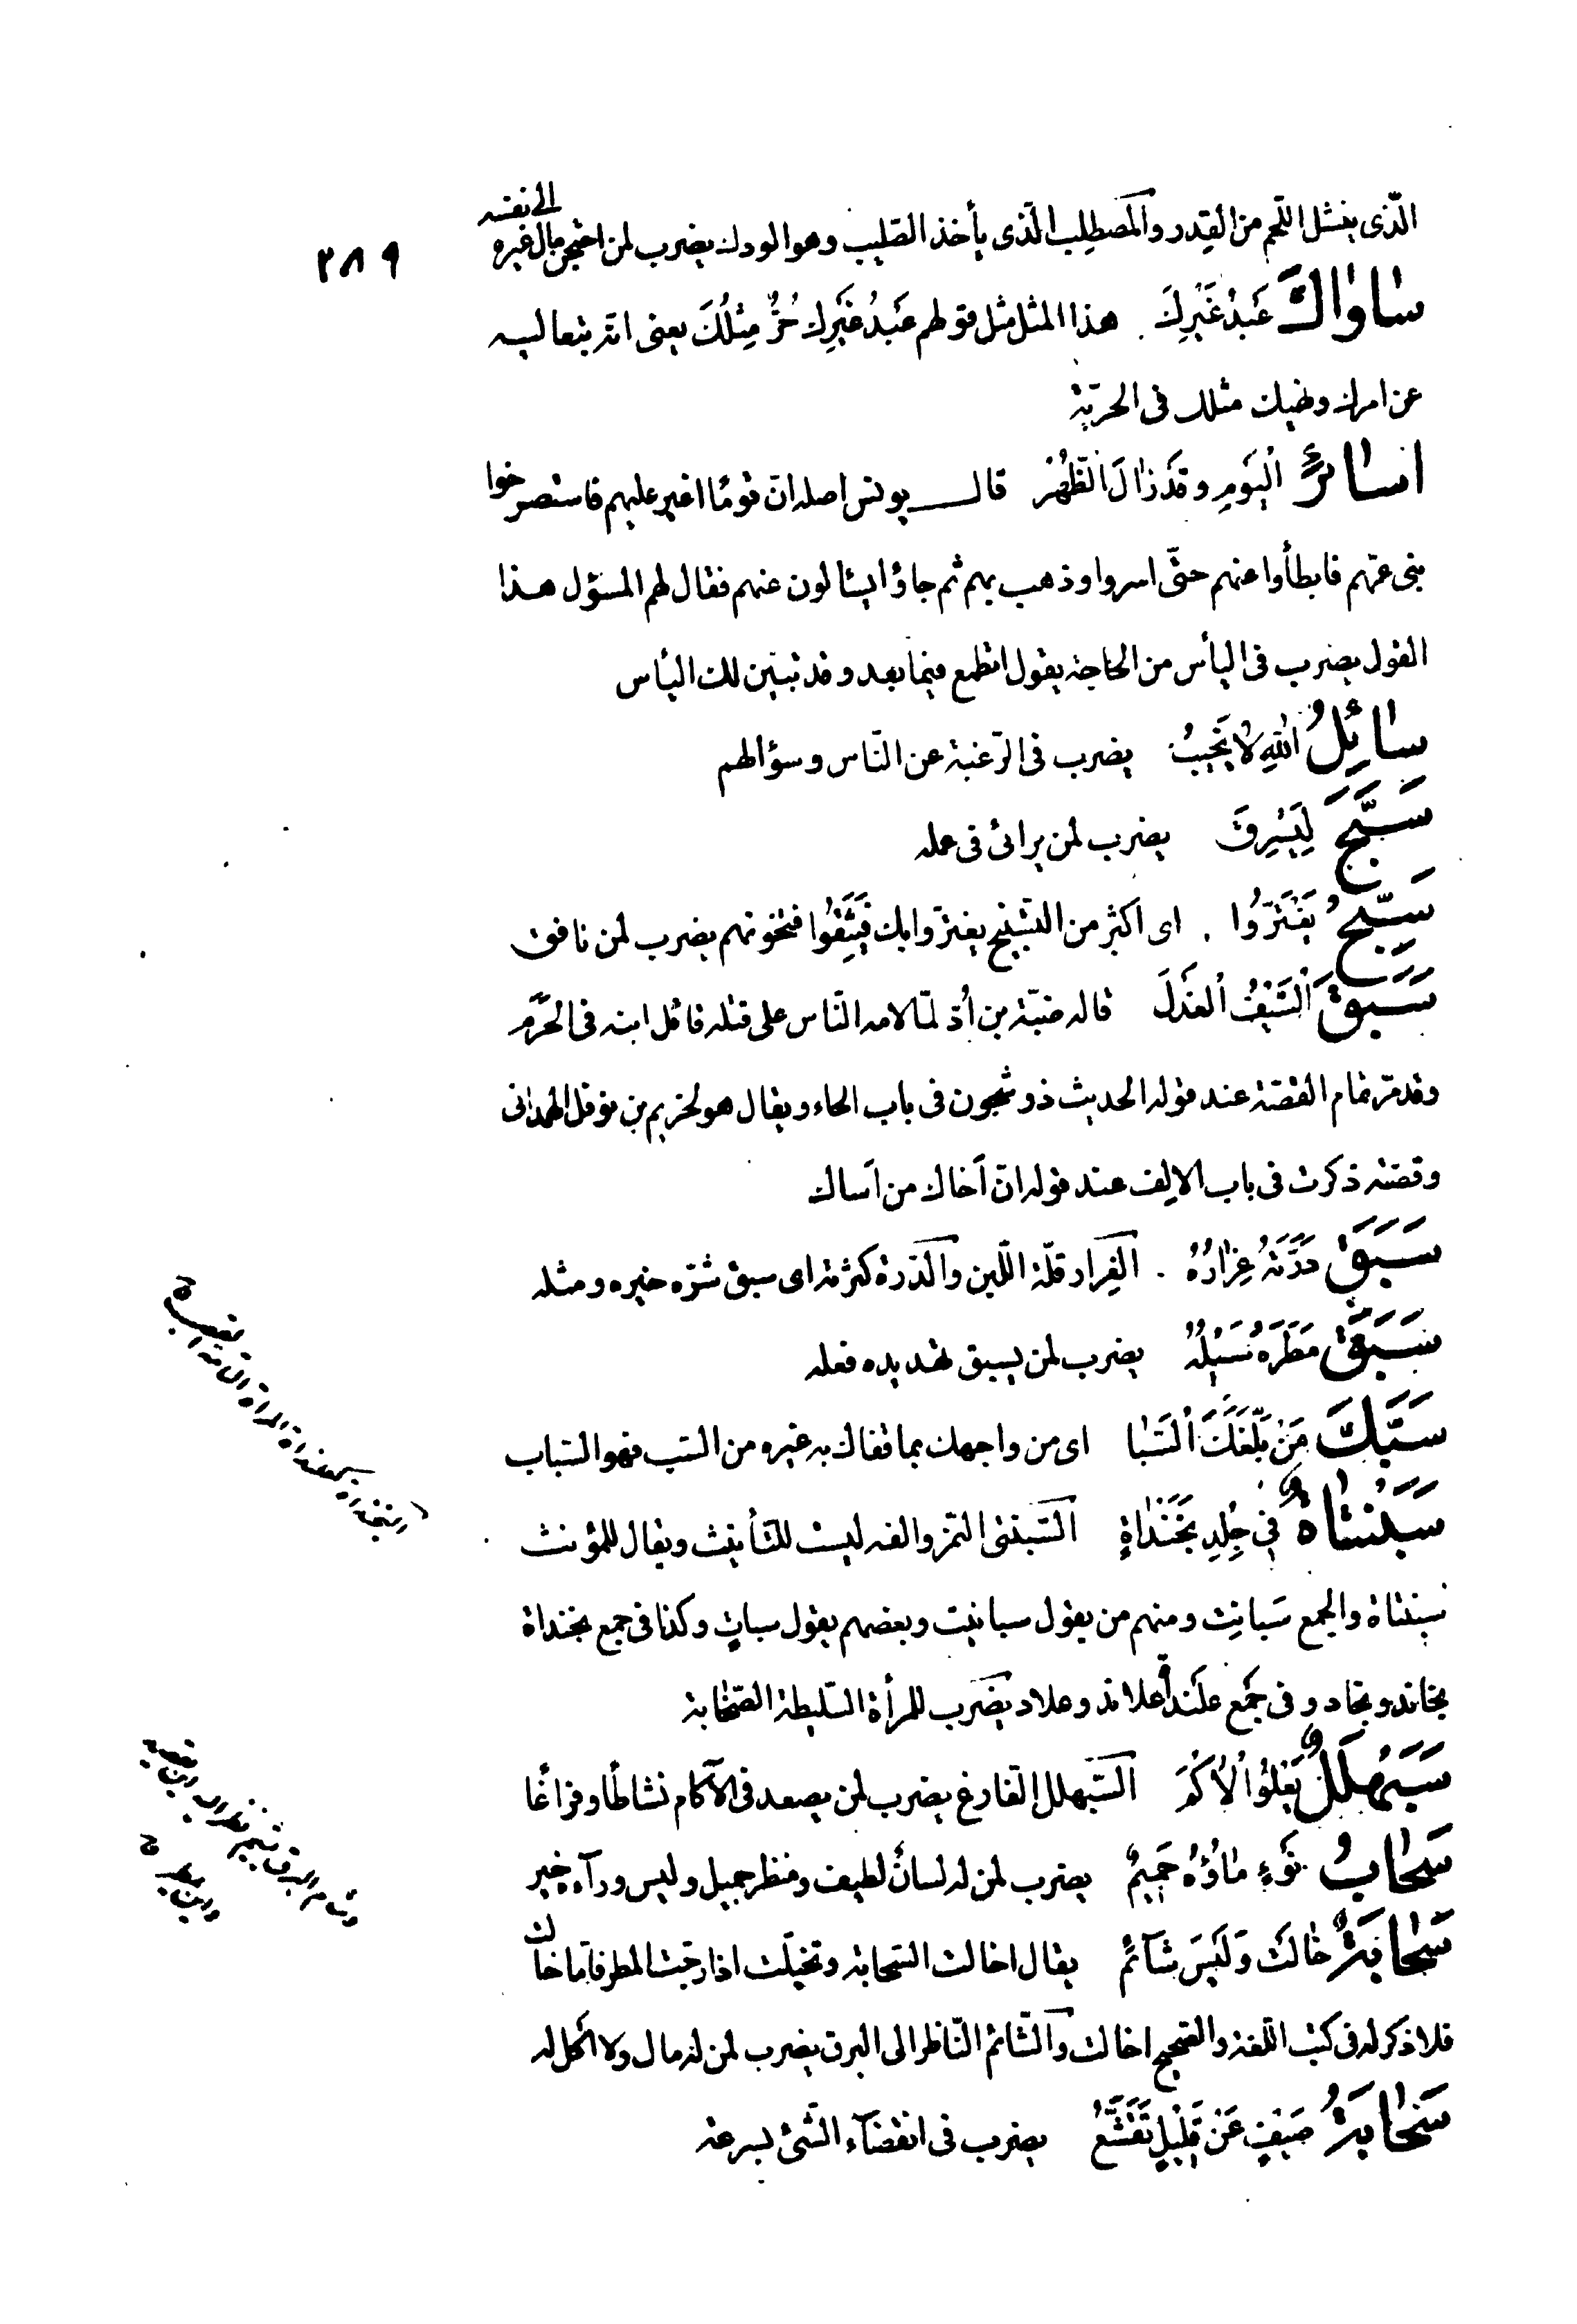 ٢٨٩
الّذى ينشل اللّحم من القِدر والمصطلِب الّذى يأخذ الصّليب وهو الودك يضرب لمن احتجن مال غيره الى نفسه
سٰاوٰاكَ عَبْدُ غَيْرِكَ هذا المثل مثل قولهم عَبْدُ غَيْرِكَ حُرٌّ مِثْلُكَ يعنى انّه بتعاليه
عن امرك ونهيك مثلك فى الحريّة
اسٰائِرٌ الْيَوْمِ وقَدْ زٰالَ الظُّهْرُ قال يونس اصله انّ قومًا اغير عليهم فاستصرخوا
بنى عمّهم فابطأوا عنهم حتّى اسروا وذهب بهم ثم جاؤا يسئالون عنهم فقال لهم المسؤل هذا
القول يضرب فى اليأس من الحاجة يقول اتطمع فيما بعد وقد تبيّن لك اليأس
سٰائِلُ اللّٰهِ لا يَخيبُ يضرب فى الرّغبة عن النّاس وسؤالهم
سَبَّحَ لِيَسْرِقَ يضرب لمن يرائى فى عمله
سَبِّحْ يَغْتَرُّوا اى اكثر من التسبيح يغترّوا بك فَيَثِقُوا فتخونهم يضرب لمن نافق
سَبَقَ السَّيْفُ الْعَذَلَ قاله ضبّة بن اُدّ لمّا لامه النّاس على قتله قاتل ابنه فى الحَرَم
وقد مرّ تمام القصّة عند قوله الحديث ذو شجون فى باب الحاء ويقال هو لخزيم بن نوفل الهمدانى
وقصّته ذكرت فى باب الالف عند قوله انّ اَخاك من اٰساك
سَبَقَ دِرَّتَهُ غِرٰارُهُ الغِرار قلّة اللّبن والدّرة كثرته اى سبق شرّه خيره ومثله
سَبَقَ مَطَرَهُ سَيْلُهُ يضرب لمن يسبق تهديده فعله
سَبَّكَ مَنْ بَلَّغَكَ السَّبّٰا اى من واجهك بما قفاك به غيره من السّب فهو السّباب
سَبَنْتٰاةٌ فى جِلْدِ بَخَنْدٰاةٍ السّبنتى النّمر والفه ليست للتأنيث ويقال للمؤنث
سبنتاة والجمع سَبانِت ومنهم من يقول سبانيت وبعضهم يقول سباتٍ وكذا فى جمع بخنداة
بخاند وبخاد وفى جَمع علَندًى علاند وعلاد يضرب للمرأة السّليطة الصّخّابة
سَبَهْلَلٌ يَعْلُو الْأَكَمَ السّبهلل الفارغ يضرب لمن يصعد فى الآكام نشاطًا وفراغًا
سَحٰابُ نَوْءٍ مٰاؤُهُ حَميمٌ يضرب لمن له لسانٌ لطيف ومنظر جميل وليس ورآءه خير
سَحٰابَةٌ خٰالَتْ وَلَيْسَ شٰآئِمٌ يقال اخالت السّحابة وتخيّلت اذا رجّت المطر فامّا خالت
فلا ذكر له فى كتب اللّغة والصحيح اخالت والشّائم النّاظر الى البرق يضرب لمن له مال ولا آكل له
سَحٰابَةُ صَيْفٍ عَنْ قَليلٍ تَقَشَّعُ يضرب فى انقضآء الشّئ بسرعة